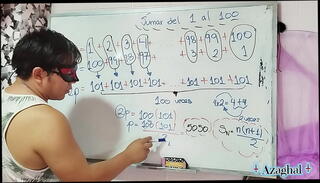 Sumar del 1 al 100
1 + 2 + 3 + 4 + +98 +99 +100
100 99 98 97 3 2 1
101 + 101 + 101 + 101 + +101 +101 +101
100 veces
4x2 = 4+4
2 veces
② P = 100 (101)
P = 100 (101) = 5050
2
Sn = n(n+1)
2
Azaghal